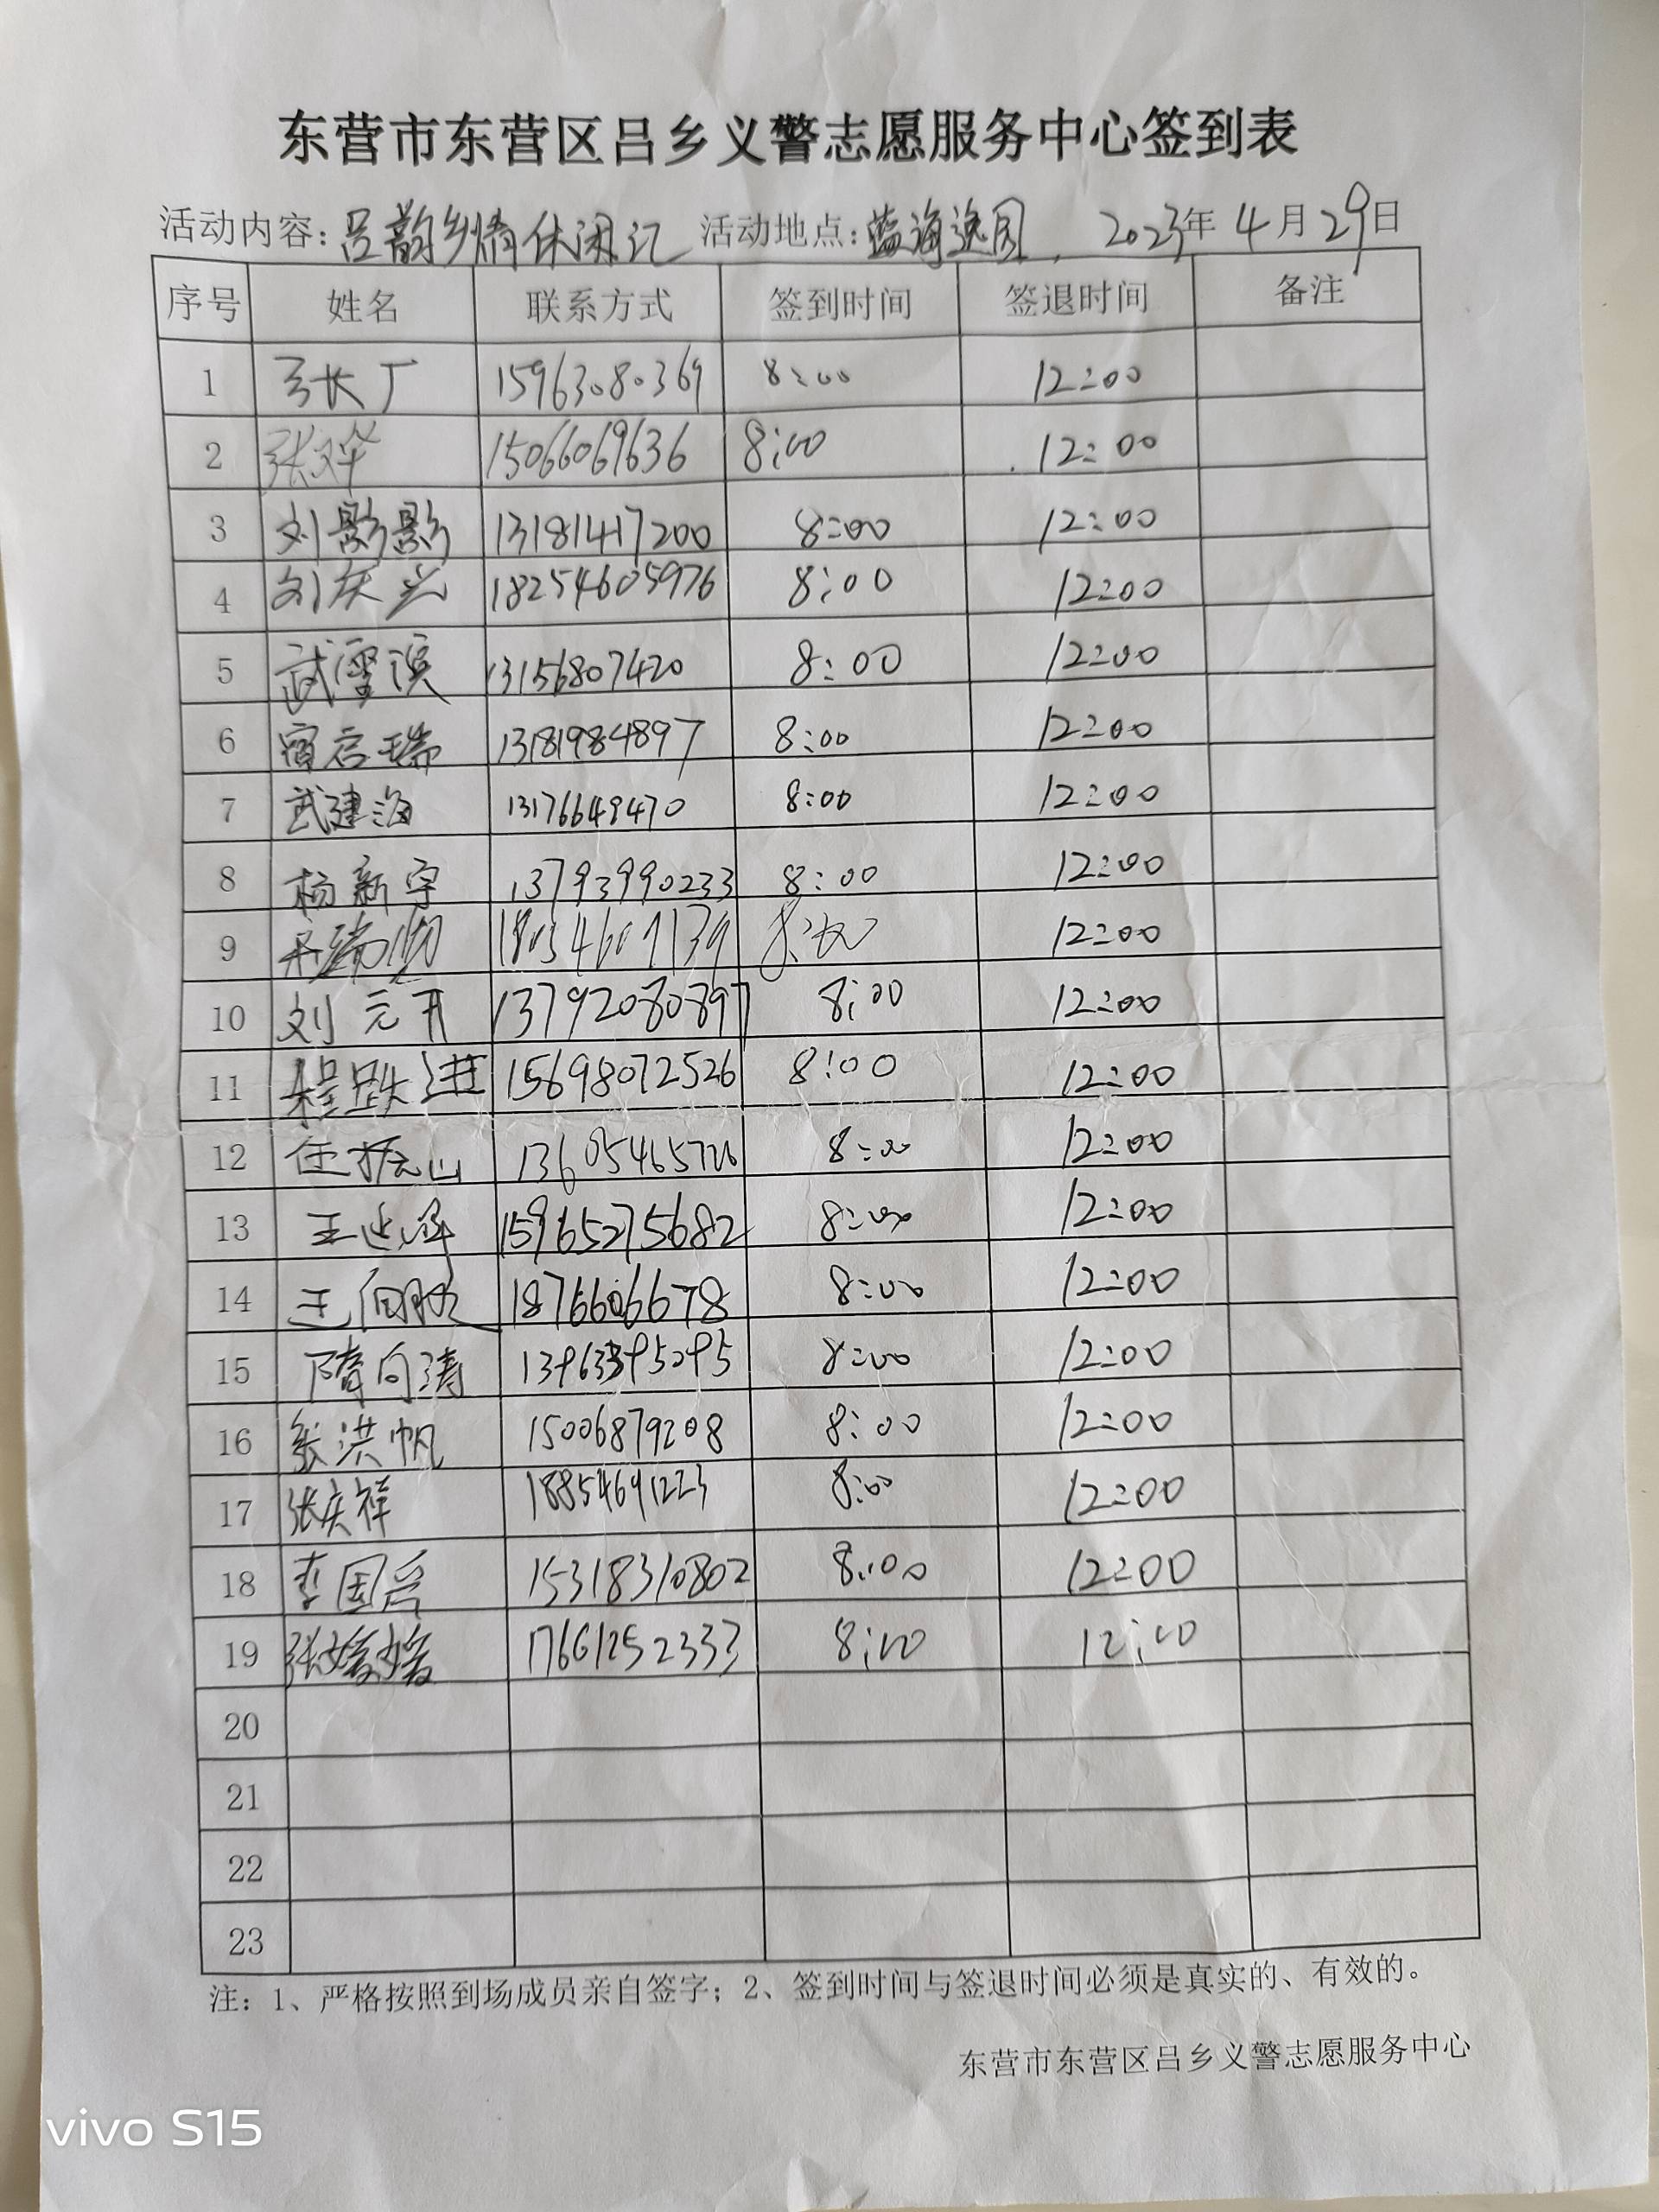 东营市东营区吕乡义警志愿服务中心签到表
活动内容：吕韵乡情休闲汇 活动地点：蓝海逸园 2023年4月29日
序号 姓名 联系方式 签到时间 签退时间 备注
1 15963080369 8:00 12:00
2 张烨 15066069636 8:00 12:00
3 刘影影 13181417200 8:00 12:00
4 刘庆兴 18254605976 8:00 12:00
5 武雪滨 13156807420 8:00 12:00
6 宿启瑞 13181984897 8:00 12:00
7 武建海 13176649470 8:00 12:00
8 杨新宇 13793990233 8:00 12:00
9 8:00 12:00
10 刘元开 13792080897 8:00 12:00
11 程跃进 15698072526 8:00 12:00
12 任振山 8:00 12:00
13 15965275682 8:00 12:00
14 18766066678 8:00 12:00
15 隋向涛 8:00 12:00
16 张洪帆 15006879208 8:00 12:00
17 张庆祥 18854691223 8:00 12:00
18 15318310802 8:00 12:00
19 张媛媛 17661252333 8:00 12:00
20
21
22
23
注：1、严格按照到场成员亲自签字；2、签到时间与签退时间必须是真实的、有效的。
东营市东营区吕乡义警志愿服务中心
vivo S15